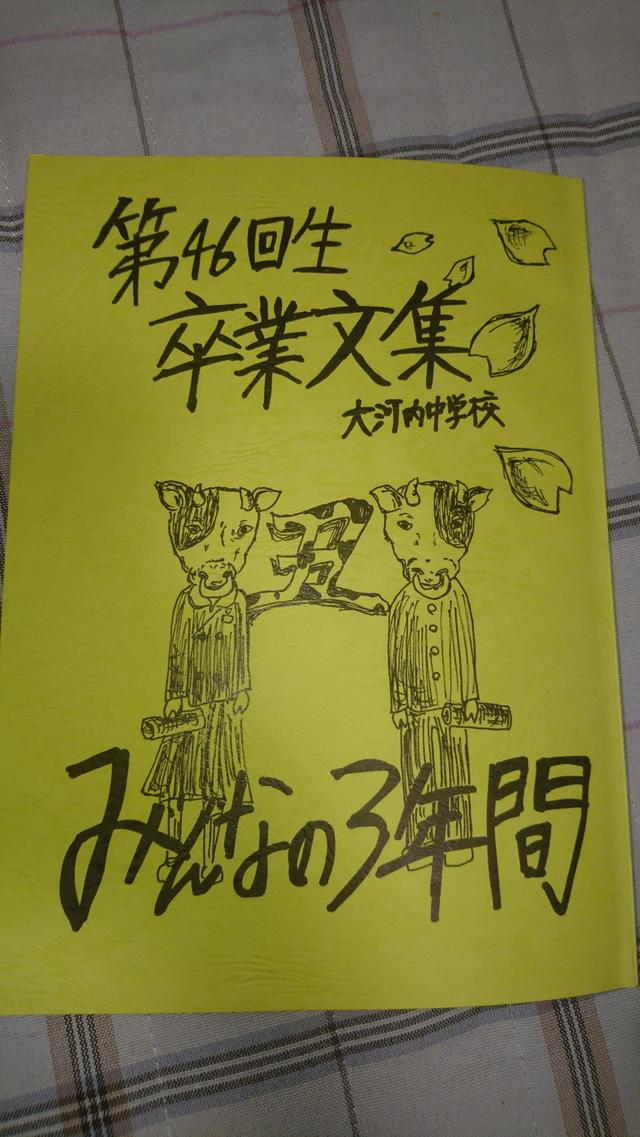 第46回生
卒業文集
大河内中学校
丑
みんなの3年間